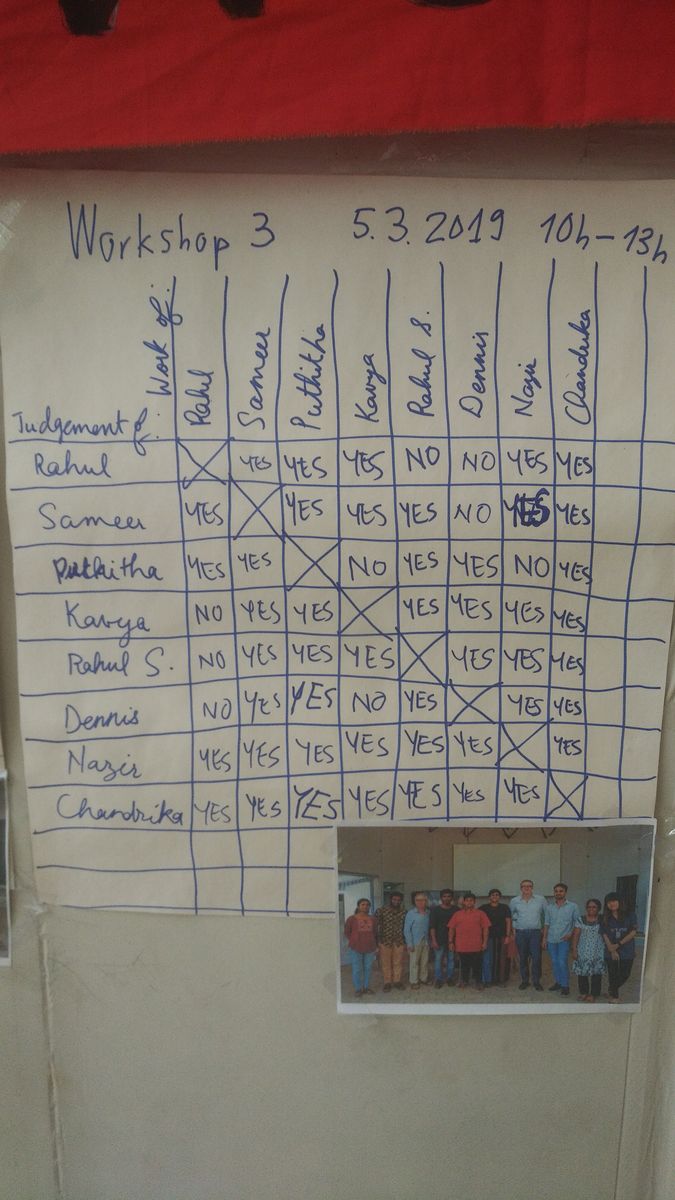 Workshop 3 5.3.2019 10h-13h
Judgement of: Work of: Rahul Sameer Puthitha Kavya Rahul S. Dennis Nazir Chandrika
Rahul X YES YES YES NO NO YES YES
Sameer YES X YES YES YES NO YES YES
Puthitha YES YES X NO YES YES NO YES
Kavya NO YES YES X YES YES YES YES
Rahul S. NO YES YES YES X YES YES YES
Dennis NO YES YES NO YES X YES YES
Nazir YES YES YES YES YES YES X YES
Chandrika YES YES YES YES YES YES YES X